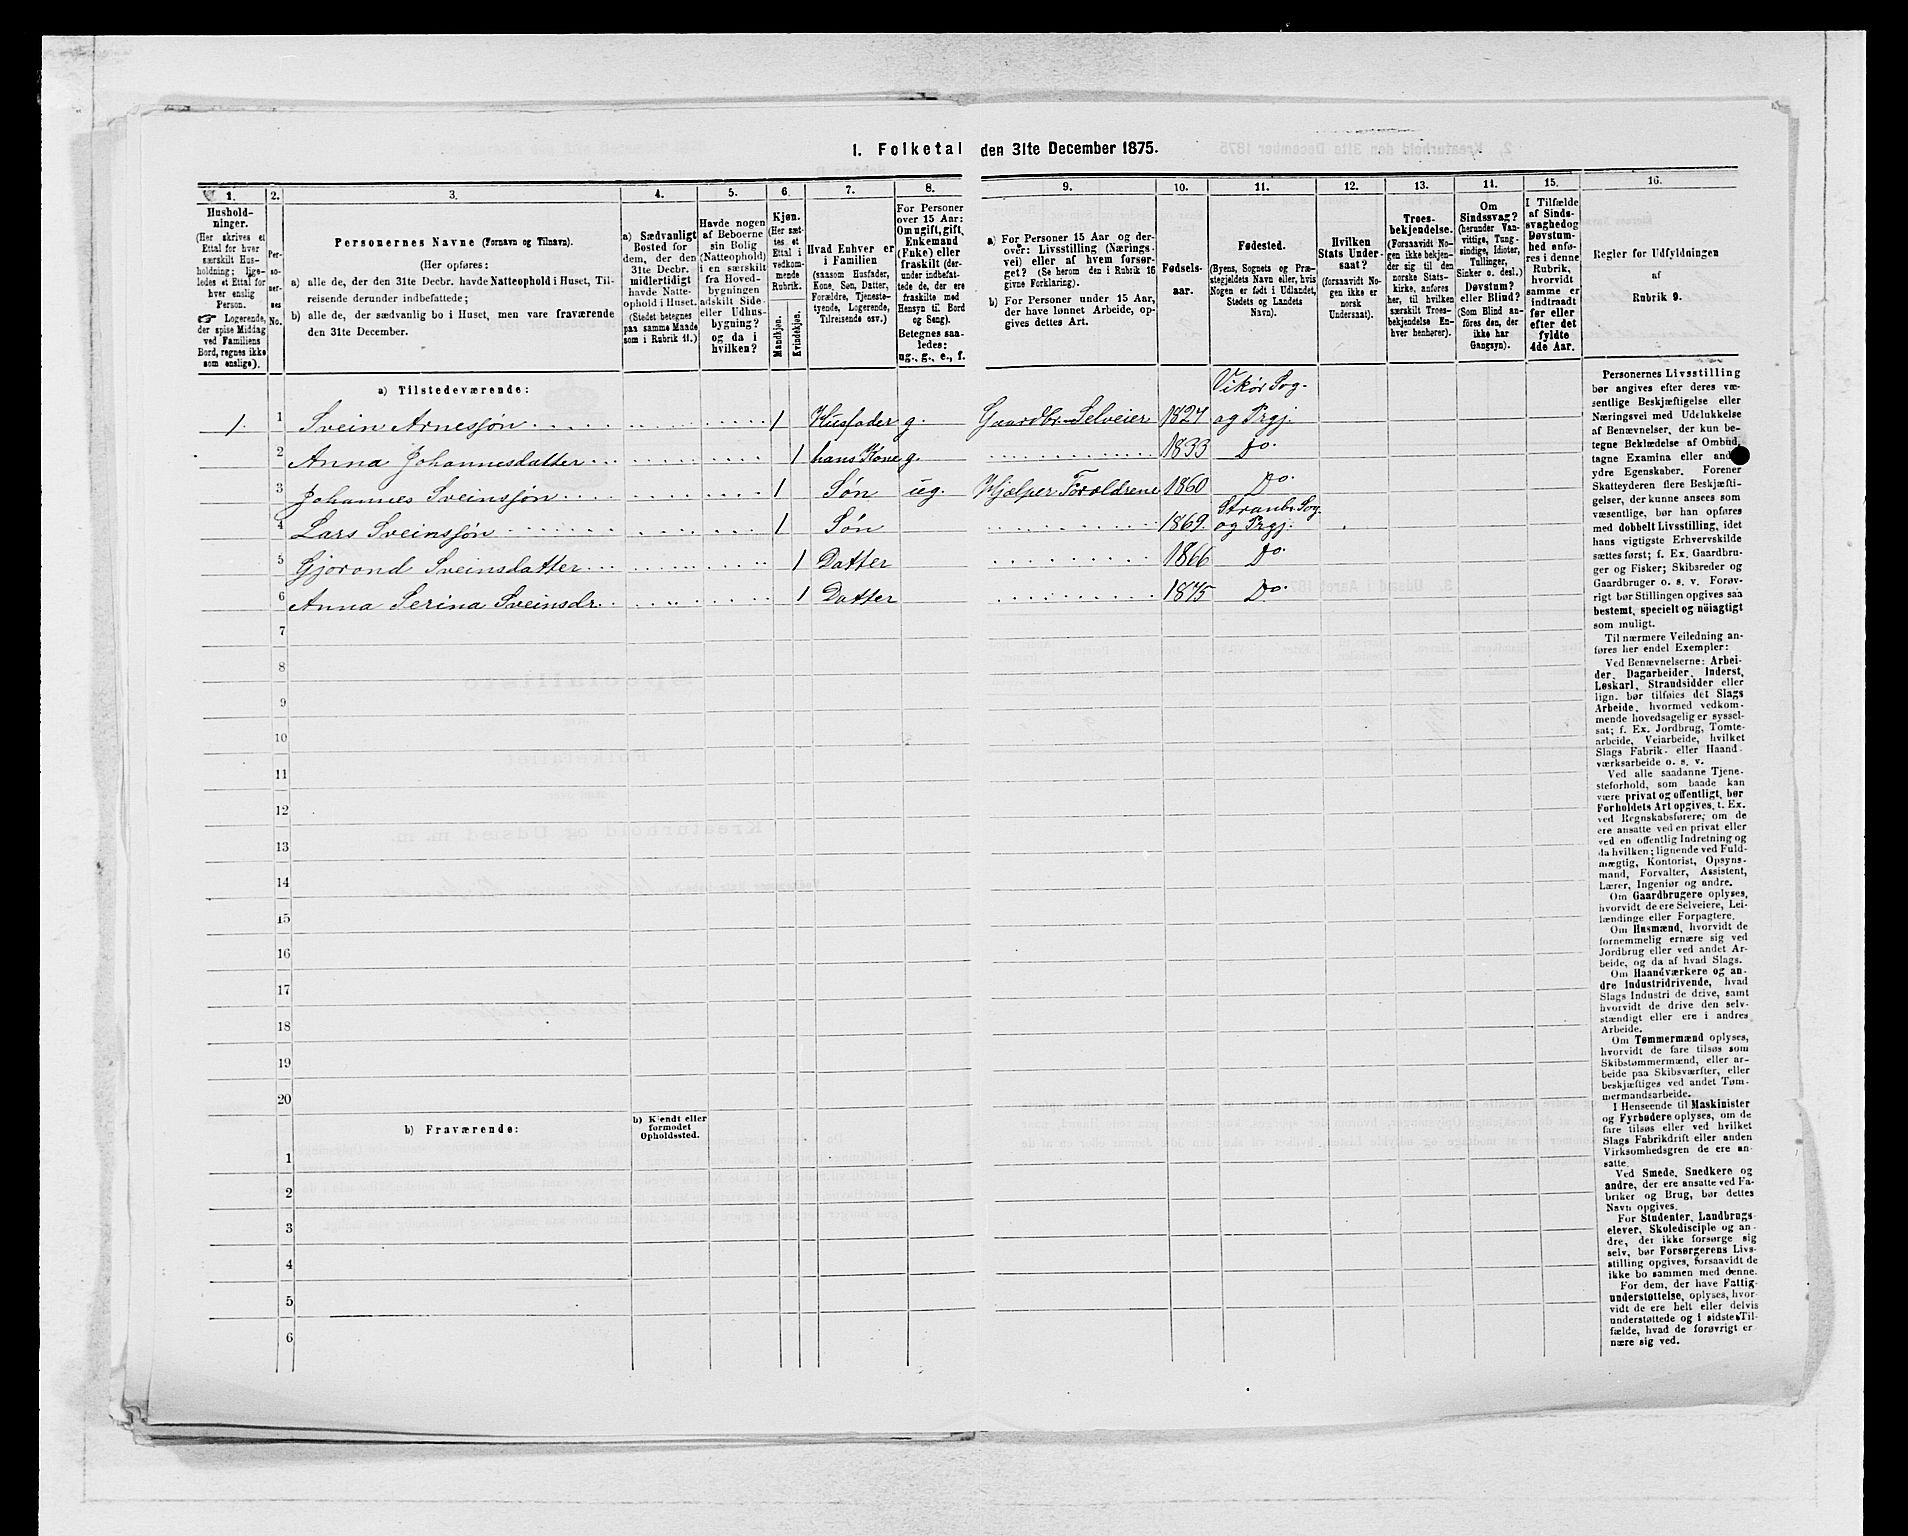 1. Folketal den 31te December 1875.
1. 2. 3. 4. 5. 6 7. 8. 9. 10. 11. 12. 13. 14. 15. 16.
Hushold-
ninger.
(Her skrives et
Ettal for hver
særskilt Hus-
holdning; lige-
ledes et Ettal for
hver enslig
Person.
☞ Logerende,
der spise Middag
ved Familiens
Bord, regnes ikke
som enslige).
Per-
so-
ner-
nes
No.
Personernes Navne (Fornavn og Tilnavn).
(Her opføres:
a) alle de, der den 31te Decbr. havde Natteophold i Huset, Til-
reisende derunder indbefattede;
b) alle de, der sædvanlig bo i Huset, men vare fraværende
den 31te December.
a) Sædvanligt
Bosted for
dem, der den
31te Decbr.
midlertidigt
havde Natte-
ophold i Huset.
(Stedet betegnes
paa samme Maade
som i Rubrik 11.)
Havde nogen
af Beboerne
sin Bolig
(Natteophold)
i en særskilt
fra Hoved-
bygningen
adskilt Side-
eller Udhus-
bygning?
og da i
hvilken?
Kjøn.
(Her sæt-
tes et
Ettal i
vedkom-
mende
Rubrik.
Mandkjøn.
Kvindekjøn.
Hvad Enhver er
i Familien
(saasom Husfader,
Kone, Søn, Datter,
Forældre, Tjeneste-
tyende, Logerende,
Tilreisende osv.)
For Personer
over 15 Aar:
Om ugift, gift,
Enkemand
(Enke) eller
fraskilt (der-
under indbefat-
tede de, der ere
fraskilte med
Hensyn til Bord
og Seng).
Betegnes saa-
ledes:
ug., g., e., f.
a) For Personer 15 Aar og der-
over: Livsstilling (Nærings-
vei) eller af hvem forsør-
get? (Se herom den i Rubrik 16
givne Forklaring).
b) For Personer under 15 Aar,
der have lønnet Arbeide, op-
gives dettes Art.
Fødsels-
aar.
Fødested.
(Byens, Sognets og Præ-
stegjeldets Navn eller, hvis
Nogen er født i Udlandet,
Stedets og Landets
Navn).
Hvilken
Stats Under-
saat?
(forsaavidt No-
gen ikke er
norsk
Undersaat).
Troes-
bekjendelse.
(Forsaavidt No-
gen ikke bekjen-
der sig til den
norske Stats-
kirke, anføres
her, til hvilken
særskilt Troes-
bekjendelse En-
hver henhører).
Om
Sindssvag?
(herunder Van-
vittige, Tung-
sindige, Idioter,
Tullinger,
Sinker o. desl.)
Døvstum?
eller Blind?
(Som Blind an-
føres den, der
ikke har
Gangsyn).
I Tilfælde
af Sinds-
svaghed og
Døvstum-
hed anfø-
res i denne
Rubrik,
hvorvidt
samme er
indtraadt
før eller
efter det
fyldte
4de Aar.
Regler for Udfyldningen
af
Rubrik 9.
a) Tilstedeværende:
1. 1 Svein Arnessøn 1 Husfader g. Gaardbr. Selveier 1827 Vikør Sog.
og Prgj.
2 Anna Johannesdatter 1 hans Kone g. 1833 Do
3 Johannes Sveinssøn 1 Søn ug. Hjælper Foroldrene 1860 Do.
4 Lars Sveinssøn 1 Søn 1869 Strandb. Sog.
og Prgj.
5 Gjorond Sveinsdatter 1 Datter 1866 Do.
6 Anna Serina Sveinsdr. 1 Datter 1875 Do.
7
8
9
10
11
12
13
14
15
16
17
18
19
20
b) Fraværende:
b) Kjendt eller
formodet
Opholdssted.
1
2
3
4
5
6
Personernes Livsstilling
bør angives efter deres væ-
sentlige Beskjæftigelse eller
Næringsvei med Udelukkelse
af Benævnelser, der kun be-
tegne Beklædelse af Ombud,
tagne Examina eller andre
ydre Egenskaber. Forener
Skatteyderen flere Beskjæfti-
gelser, der kunne ansees som
væsentlige, bør han opføres
med dobbelt Livsstilling, idet
hans vigtigste Erhvervskilde
sættes først; f. Ex. Gaardbru-
ger og Fisker; Skibsreder og
Gaardbruger o. s. v. Forøv-
rigt bør Stillingen opgives saa
bestemt, specielt og nöiagtigt
som muligt.
Til nærmere Veiledning an-
føres her endel Exempler:
Ved Benævnelserne: Arbei-
der, Dagarbeider, Inderst,
Løskarl, Strandsidder eller
lign. bør tilføies det Slags
Arbeide, hvormed vedkom-
mende hovedsagelig er syssel-
sat; f. Ex. Jordbrug, Tomte-
arbeide, Veiarbeide, hvilket
Slags Fabrik- eller Haand-
værksarbeide o. s. v.
Ved alle saadanne Tjene-
steforhold, som baade kan
være privat og offentligt, bør
Forholdets Art opgives, t. Ex.
ved Regnskabsførere; om de
ere ansatte ved en privat eller
ved en offentlig Indretning og
da hvilken; lignende ved Fuld-
mægtig, Kontorist, Opsyns-
mand, Forvalter, Assistent,
Lærer, Ingeniør og andre.
Om Gaardbrugere oplyses,
hvorvidt de ere Selveiere, Lei-
lændinge eller Forpagtere.
Om Husmænd, hvorvidt de
fornemmelig ernære sig ved
Jordbrug eller ved andet Ar-
beide, og da af hvad Slags.
Om Haandværkere og an-
dre Industridrivende, hvad
Slags Industri de drive, samt
hvorvidt de drive den selv-
stændigt eller ere i andres
Arbeide.
Om Tømmermænd oplyses,
hvorvidt de fare tilsøs som
Skibstømmermænd, eller ar-
beide paa Skibsværfter, eller
beskjæftiges ved andet Tøm-
mermandsarbeide.
I Henseende til Maskinister
og Fyrbødere oplyses, om de
fare tilsøs eller ved hvilket
Slags Fabrikdrift eller anden
Virksomhedsgren de ere an-
satte.
Ved Smede, Snedkere og
andre, der ere ansatte ved Fa-
briker og Brug, bør dettes
Navn opgives.
For Studenter, Landbrugs-
elever, Skoledisciple og an-
dre, der ikke forsørge sig
selv, bør Forsørgerens Livs-
stilling opgives, forsaavidt de
ikke bo sammen med denne.
For dem, der have Fattig-
understøttelse, oplyses, hvor-
vidt de ere helt eller delvis
understøttede og i sidste Til-
fælde, hvad de forøvrigt er-
nære sig ved.